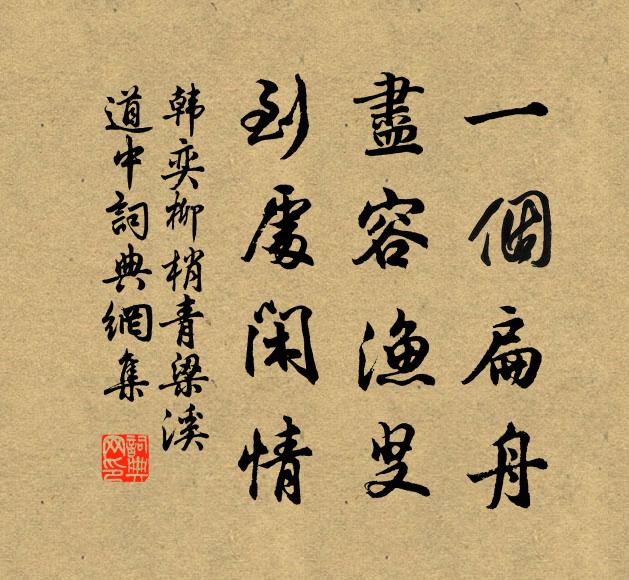 一個扁舟
盡容漁叟
到處閑情
韩奕柳梢青梁溪
道中詞典網集
詞典网印